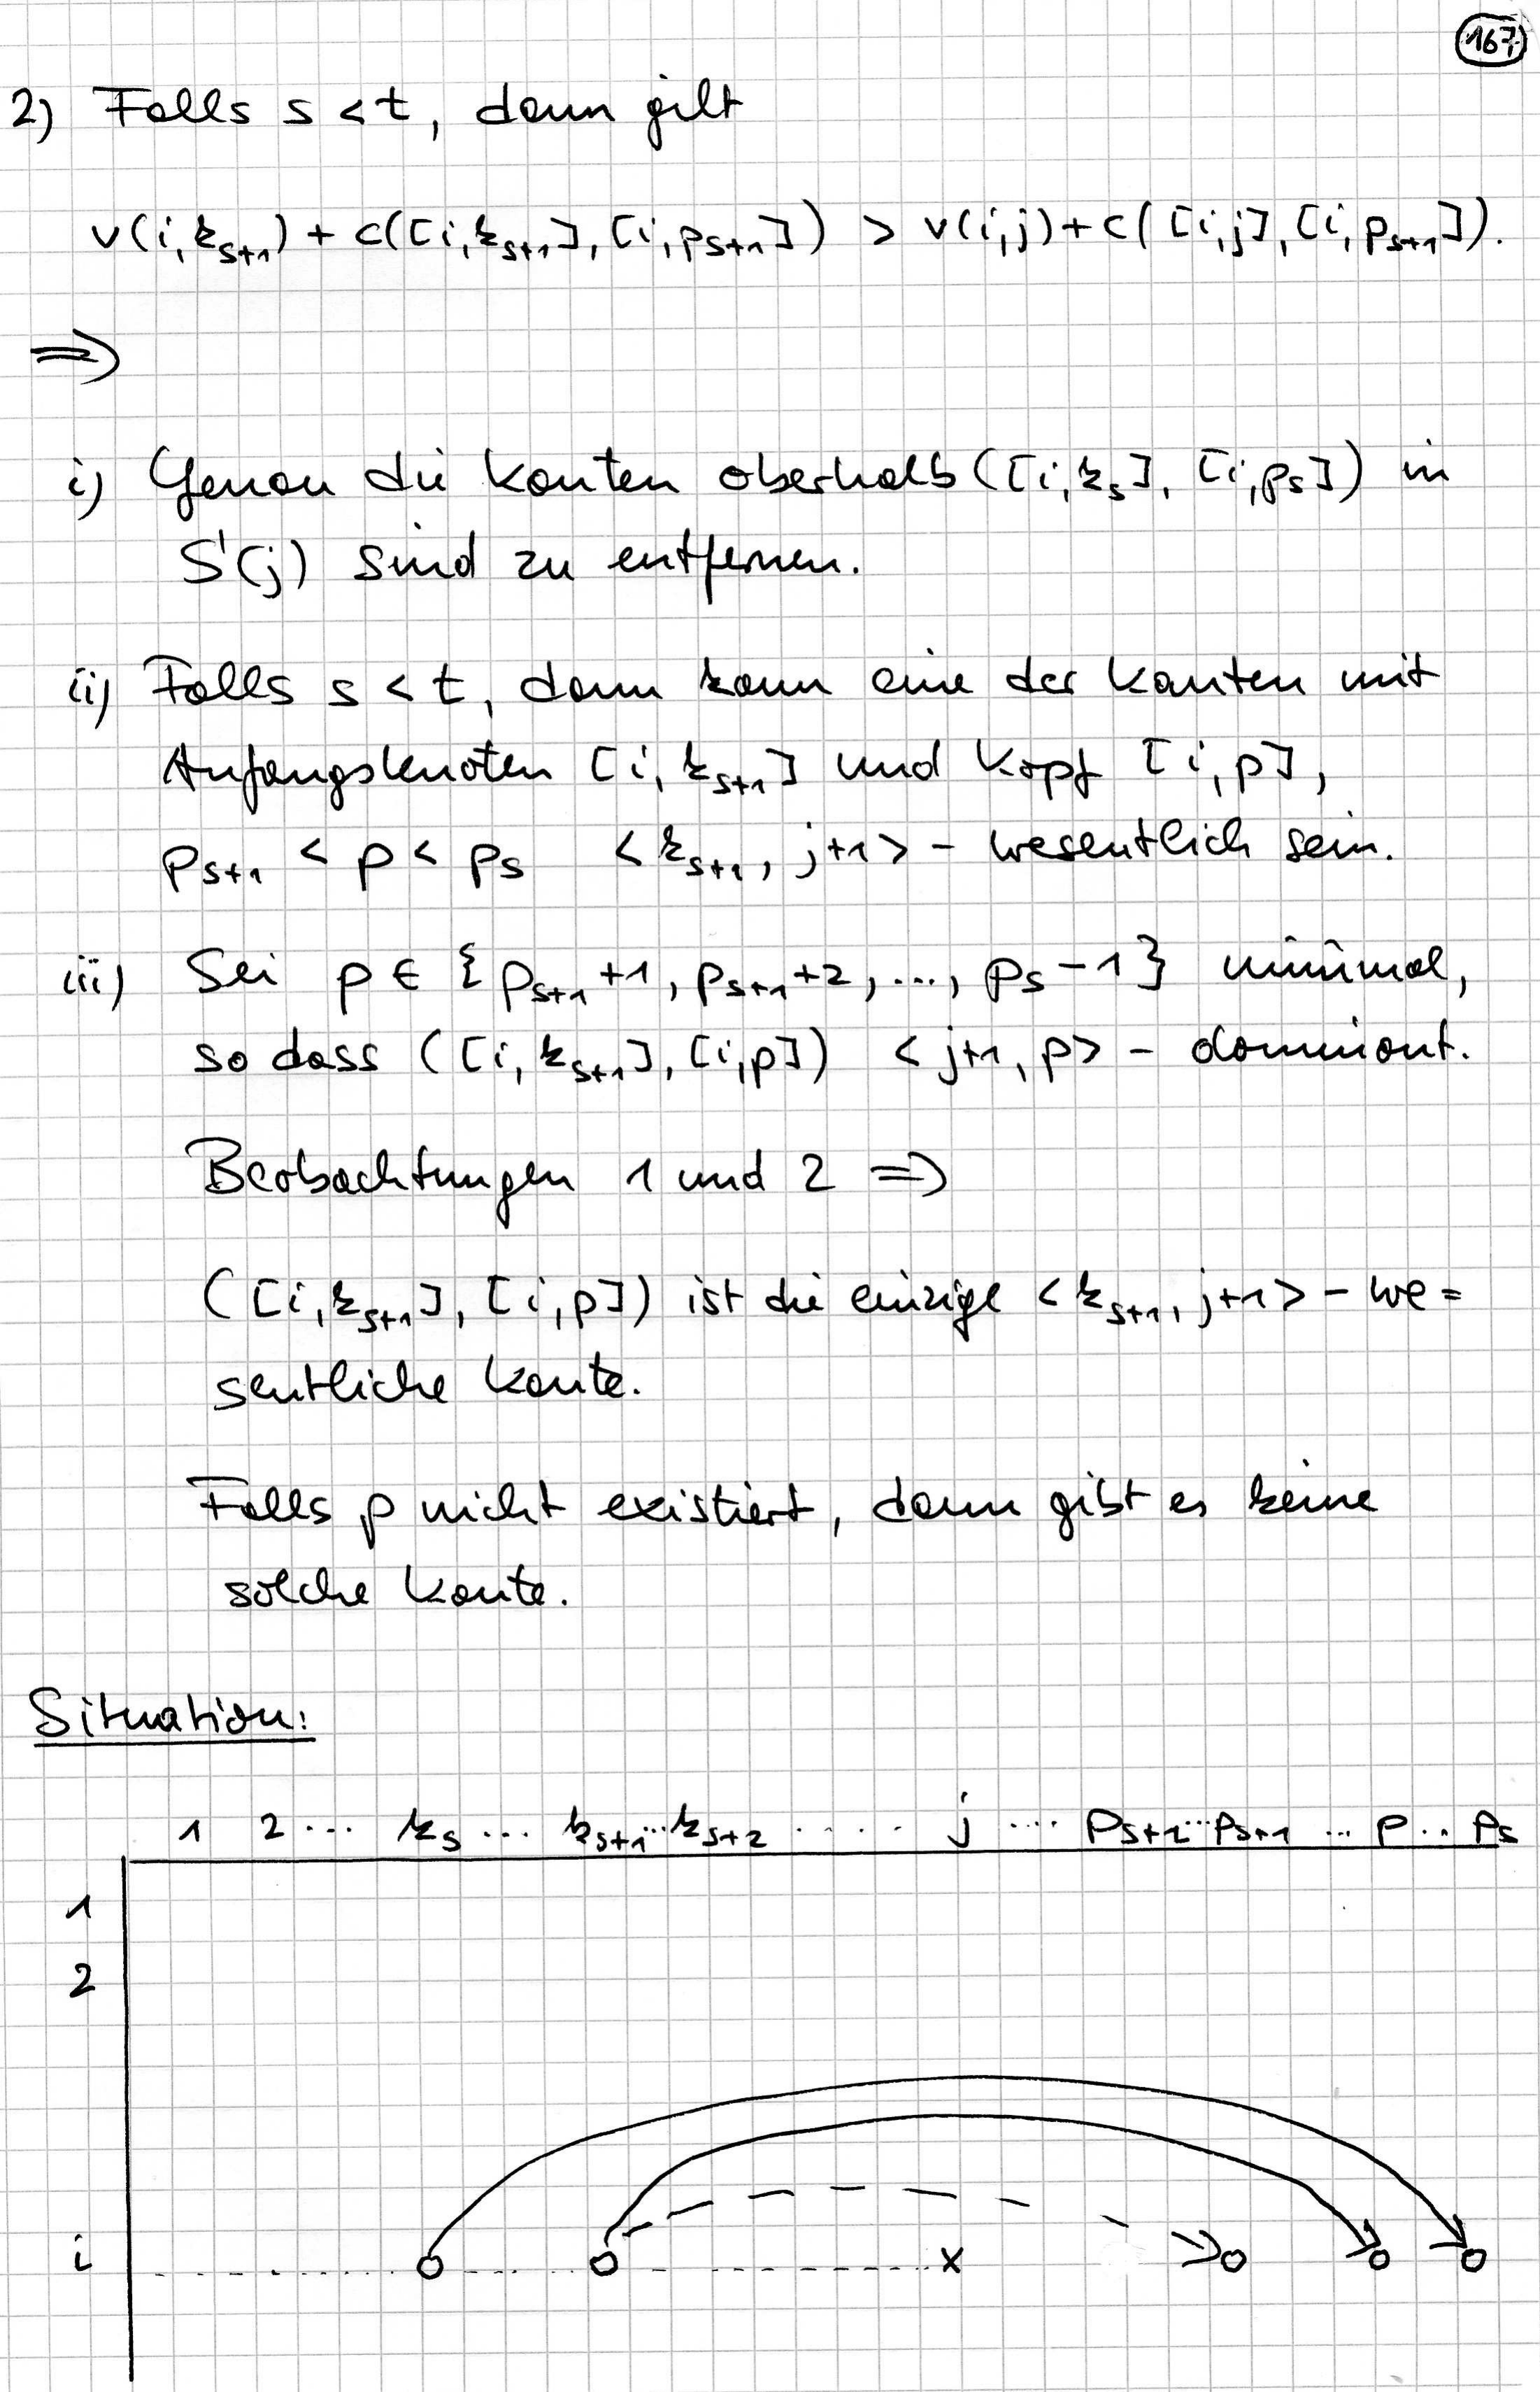 167
2) Falls s < t, dann gilt
v(i,k_{s+1}) + c([i,k_{s+1}], [i,p_{s+1}]) > v(i,j) + c([i,j], [i,p_{s+1}]).
⇒
i) Genau die Kanten oberhalb ([i,k_s], [i,p_s]) in
S(j) sind zu entfernen.
ii) Falls s < t, dann kann eine der Kanten mit
Anfangsknoten [i, k_{s+1}] und Kopf [i,p],
p_{s+1} < p < p_s <k_{s+1}, j+1> - wesentlich sein.
iii) Sei p ∈ {p_{s+1}+1, p_{s+1}+2, ..., p_s-1} minimal,
so dass ([i, k_{s+1}], [i,p]) <j+1, p> - dominant.
Beobachtungen 1 und 2 ⇒
([i,k_{s+1}], [i,p]) ist die einzige <k_{s+1}, j+1> - we=
sentliche Kante.
Falls p nicht existiert, dann gibt es keine
solche Kante.
Situation:
1 2 ... k_s ... k_{s+1} ... k_{s+2} ..... j .... p_{s+2} ... p_{s+1} ... p .. p_s
1
2
i x